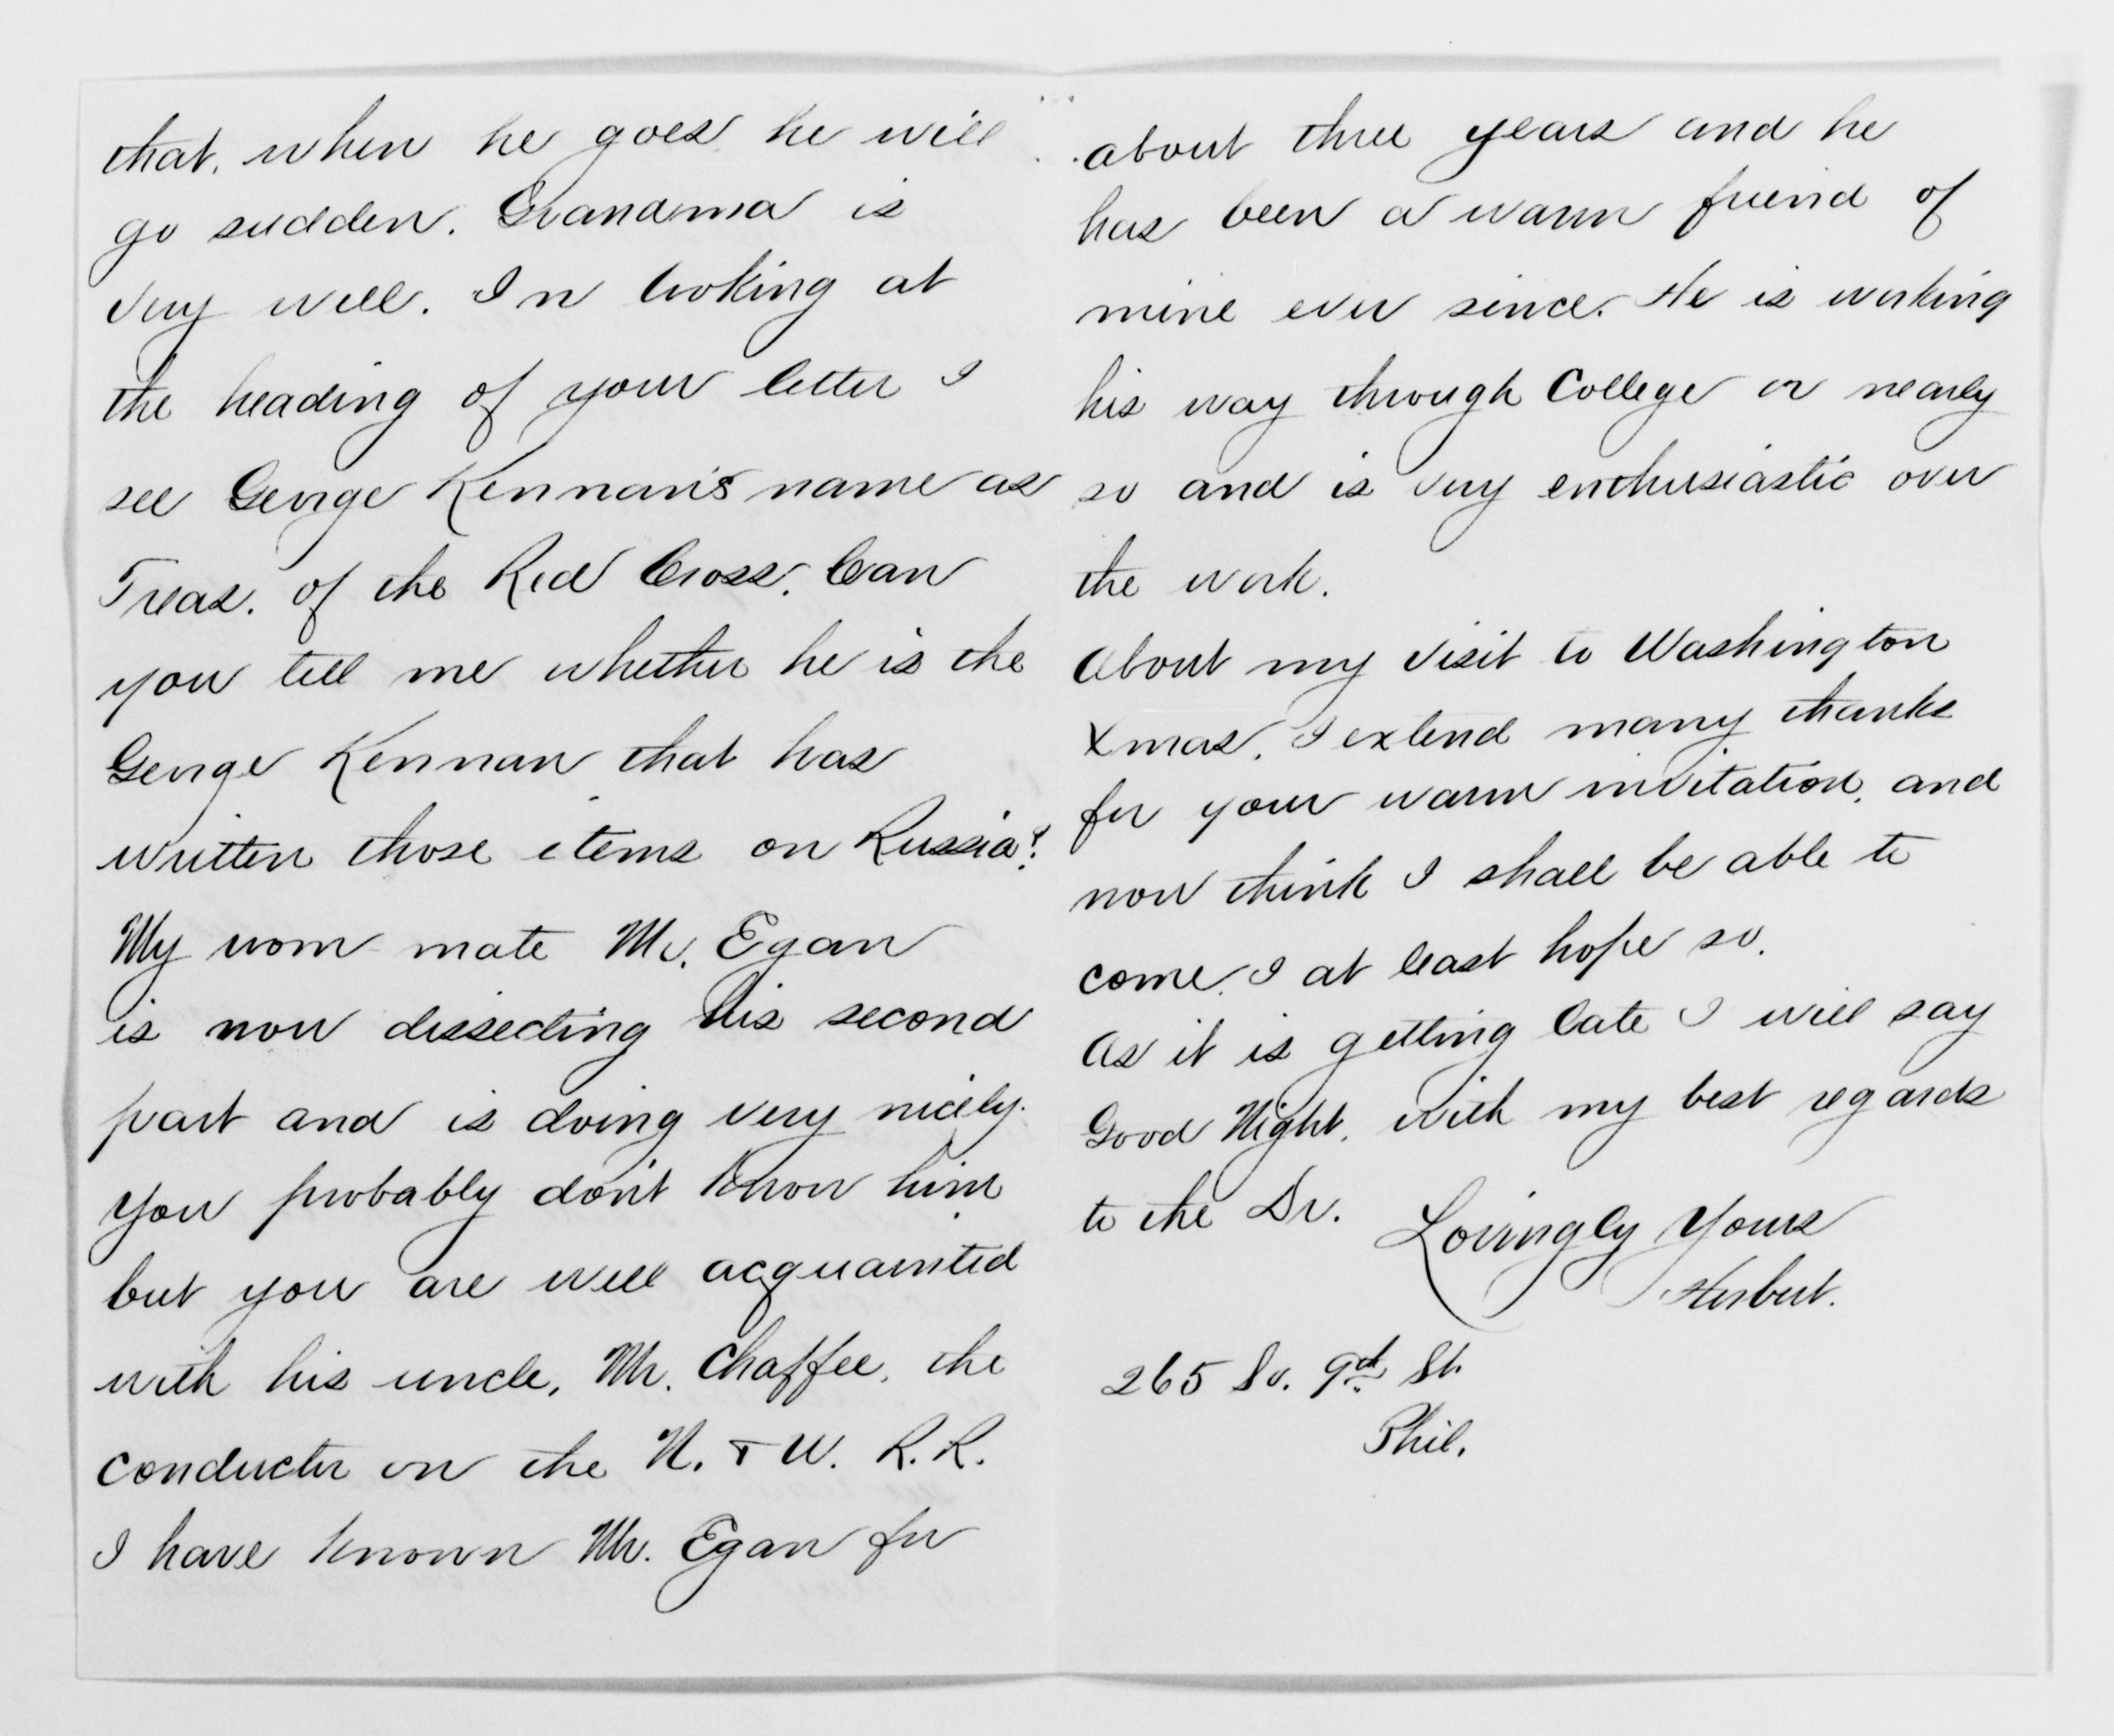 that, when he goes he will
go sudden. Grandma is
very well. In looking at
the heading of your letter I
see George Kennan's name as
Treas. of the Red Cross. Can
you tell me whether he is the
George Kennan that has
written those items on Russia?
My room mate Mr. Egan
is now dissecting his second
part and is doing very nicely.
You probably don't know him
but you are well acquainted
with his uncle, Mr. Chaffee, the
conductor on the N. & W. R.R.
I have known Mr. Egan for
about three years and he
has been a warm friend of
mine ever since. He is working
his way through College or nearly
so and is very enthusiastic over
the work.
About my visit to Washington
Xmas. I extend many thanks
for your warm invitation, and
now think I shall be able to
come. I at least hope so.
As it is getting late I will say
Good Night, with my best regards
to the Dr.
Lovingly Yours
Herbert.
265 So. 9th St.
Phil.